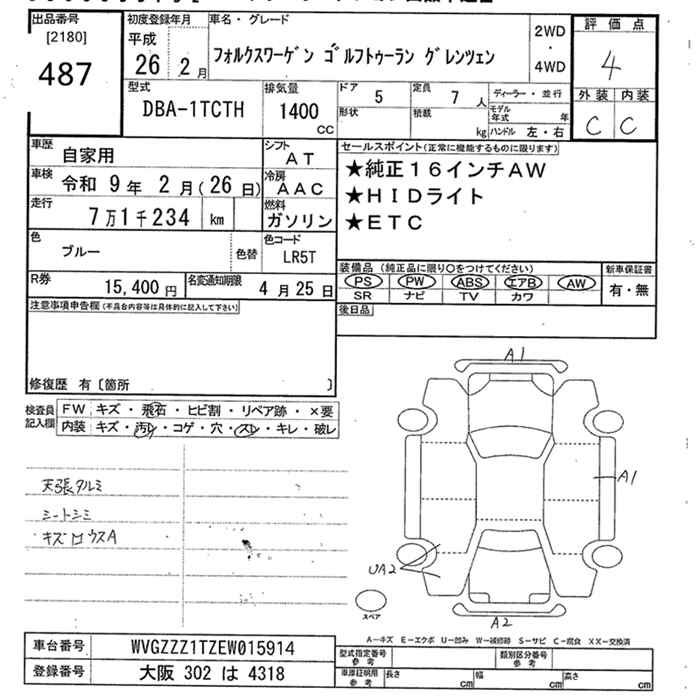 出品番号 初度登録年月 車名・グレード 評価点
[2180] 平成 2WD
487 26 2月 フォルクスワーゲン ゴルフトゥーラン グレンツェン ・ 4
4WD
型式 排気量 ドア 5 定員 7人 ディーラー・並行 外装 内装
DBA-1TCTH 1400 形状 積載 モデル年式 年 C C
CC kg ハンドル 左・右
車歴 自家用 シフト AT セールスポイント(正常に機能するものに限ります)
車検 令和 9年 2月(26日) 冷房 AAC ★純正16インチAW
走行 7万1千234 km 燃料 ガソリン ★HIDライト
★ETC
色 ブルー 色替 色コード LR5T
装備品(純正品に限り〇をつけてください) 新車保証書
R券 15,400円 名変通知期限 4月25日 PS PW ABS エアB AW 有・無
SR ナビ TV カワ
注意事項申告欄(不具合内容等は具体的に記入して下さい) 後日品
修復歴 有〔箇所 〕
A1
検査員記入欄 FW キズ・飛石・ヒビ割・リペア跡・×要
内装 キズ・汚レ・コゲ・穴・スレ・キレ・破レ
A1
天張タルミ
シートシミ
キズロウスA
UA2
スペア
A2
A-キズ E-エクボ U-凹み W-補修跡 S-サビ C-腐食 XX-交換済
車台番号 WVGZZZ1TZEW015914 型式指定番号 参考 類別区分番号 参考
登録番号 大阪 302 は 4318 車庫証明用 参考 長さ cm 幅 cm 高さ cm